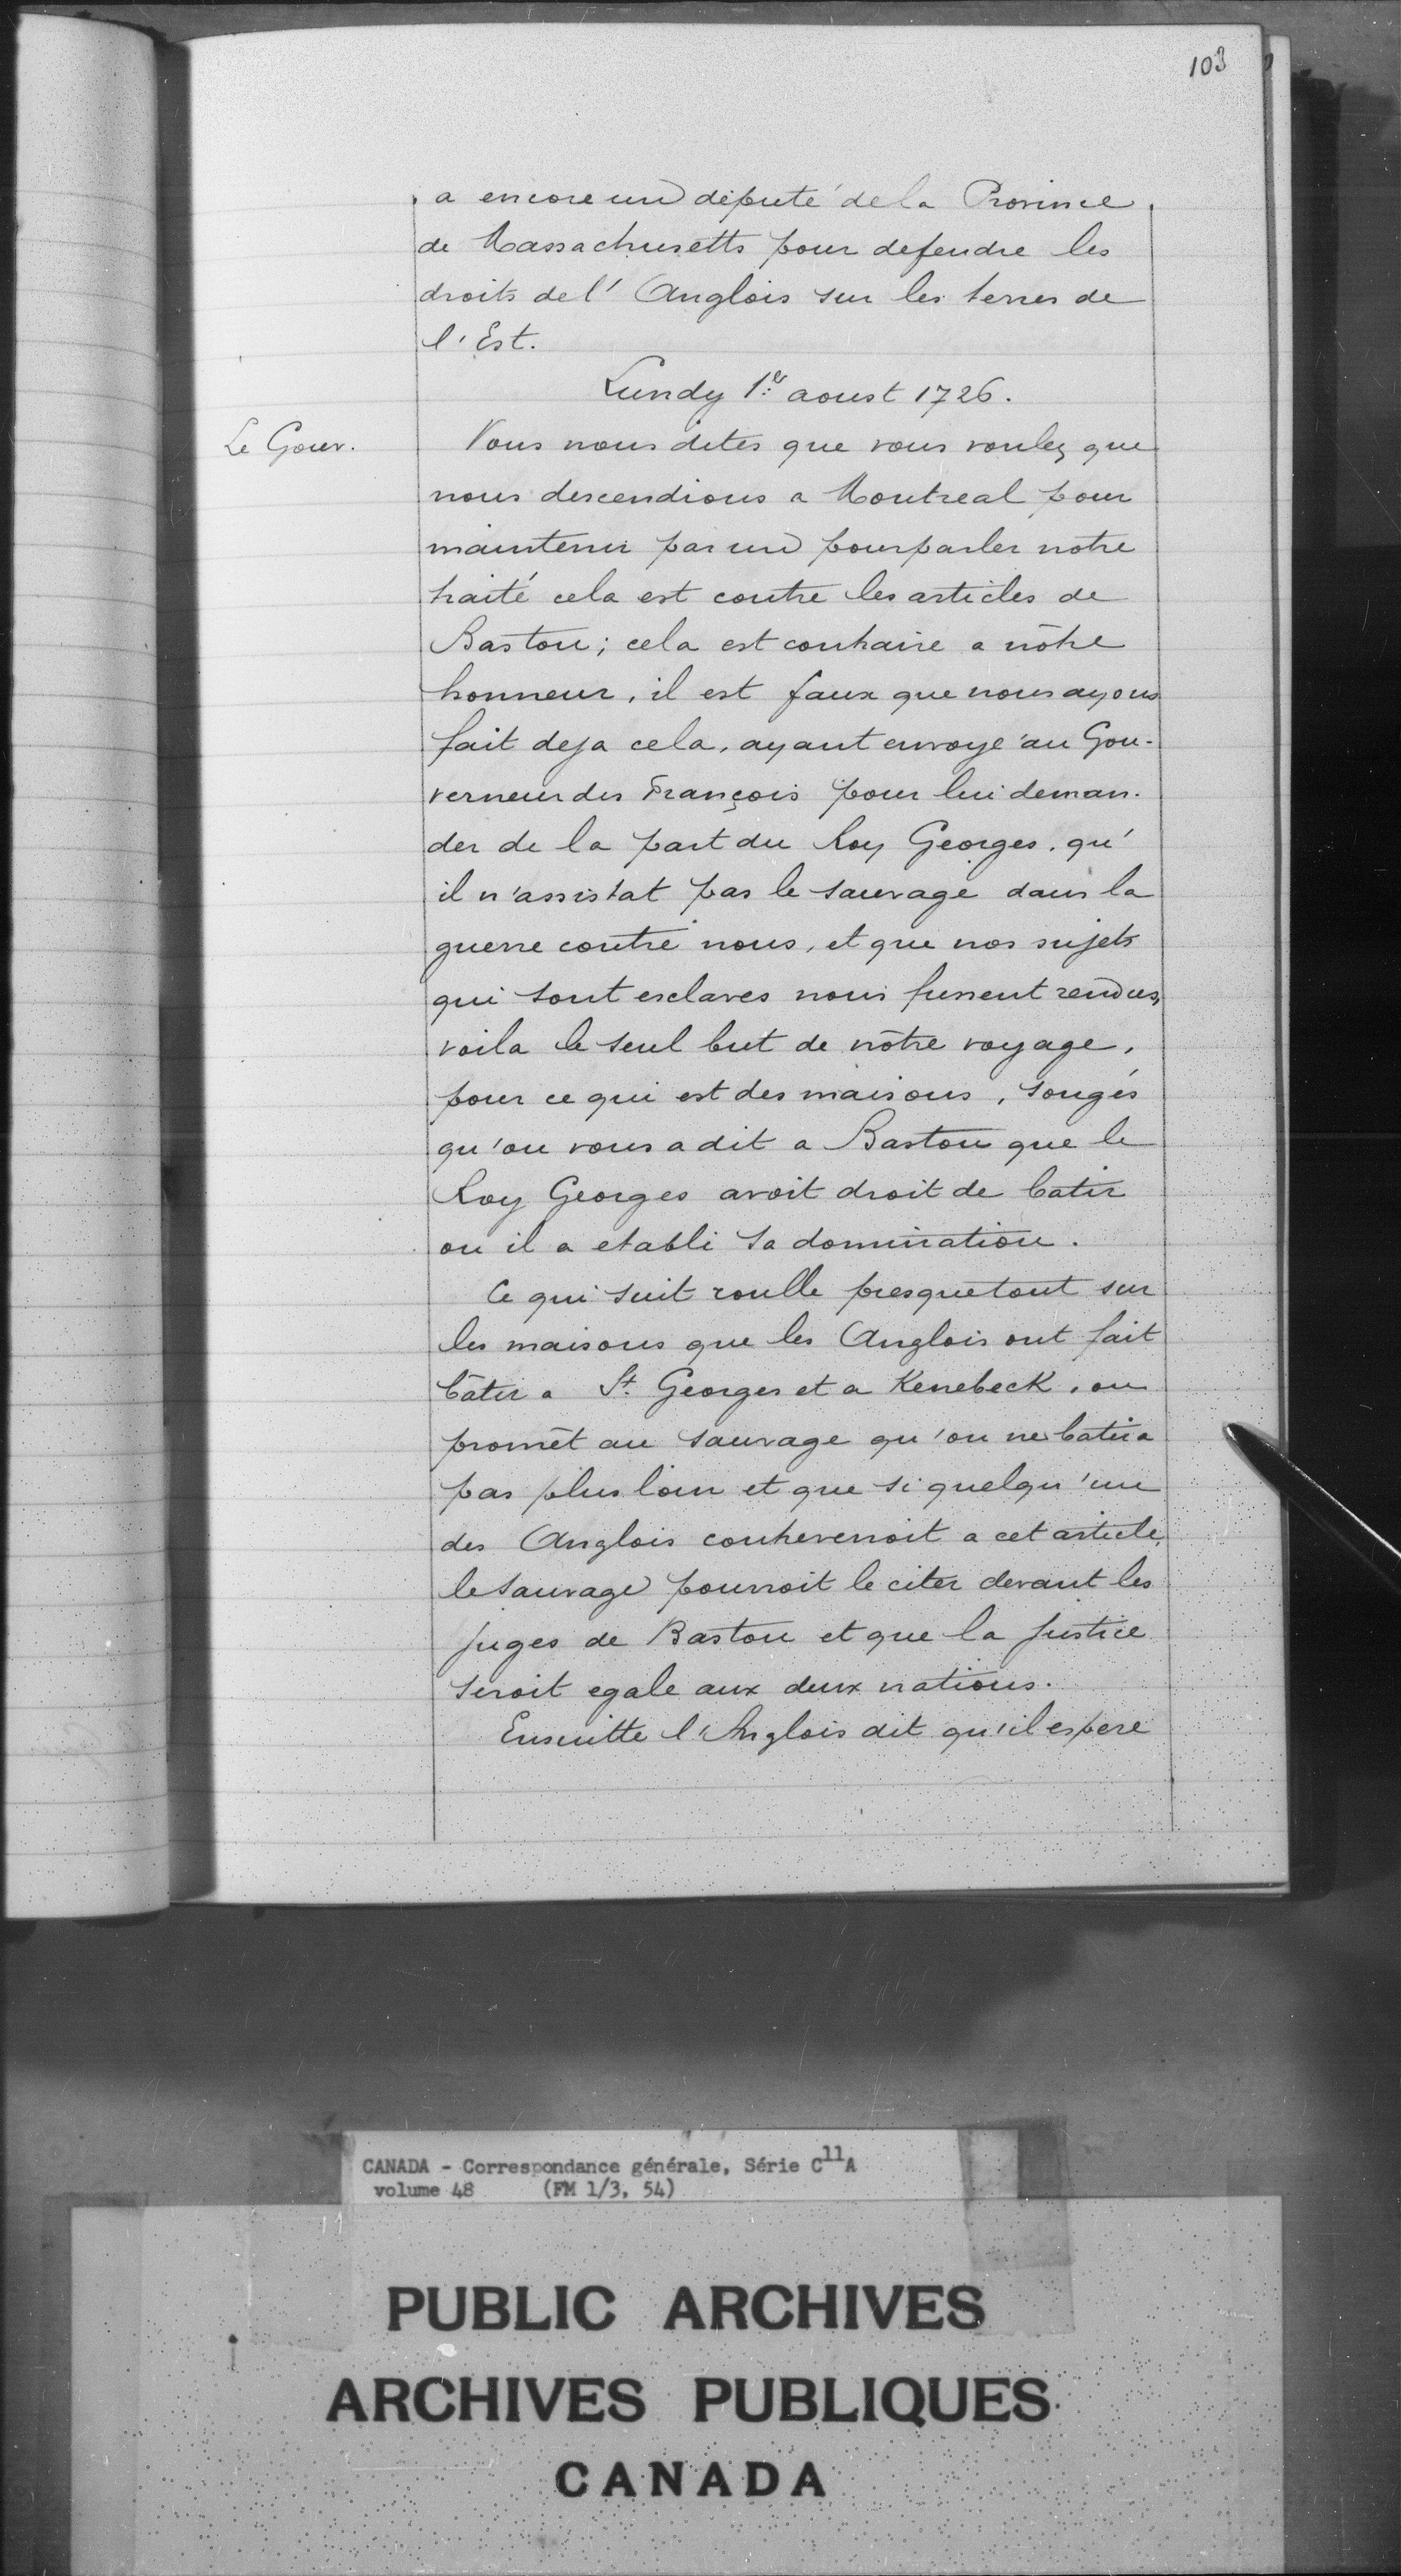 103
a encore un député de la Province
de Massachusetts pour defendre les
droits de l'Anglois sur les terres de
l'Est.
Lundy 1er aoust 1726.
Le Gouv.
Vous nous dites que vous voulez que
nous descendions a Montreal pour
maintenir par un pourparler notre
traité cela est contre les articles de
Baston; cela est contraire a nôtre
honneur, il est faux que nous ayons
fait deja cela, ayant envoyé au Gou-
verneur des François pour lui deman-
der de la part du Roy Georges, qu'
il n'assistat pas le sauvage dans la
guerre contre nous, et que nos sujets
qui sont esclaves nous fussent rendus,
voila le seul but de nôtre voyage,
pour ce qui est des maisons, songés
qu'on vous a dit a Baston que le
Roy Georges avoit droit de batir
ou il a etabli sa domination.
Ce qui suit roulle presque tout sur
les maisons que les Anglois ont fait
bâtir a St. Georges et a Kenebeck, on
promêt au sauvage qu'on ne batira
pas plus loin et que si quelqu'un
des Anglois contrevenoit a cet article,
le sauvage pourroit le citer devant les
juges de Baston et que la justice
seroit egale aux deux nations.
Ensuitte l'Anglois dit qu'il espere
CANADA - Correspondance générale, Série C11A
volume 48 (FM 1/3, 54)
PUBLIC ARCHIVES
ARCHIVES PUBLIQUES
CANADA